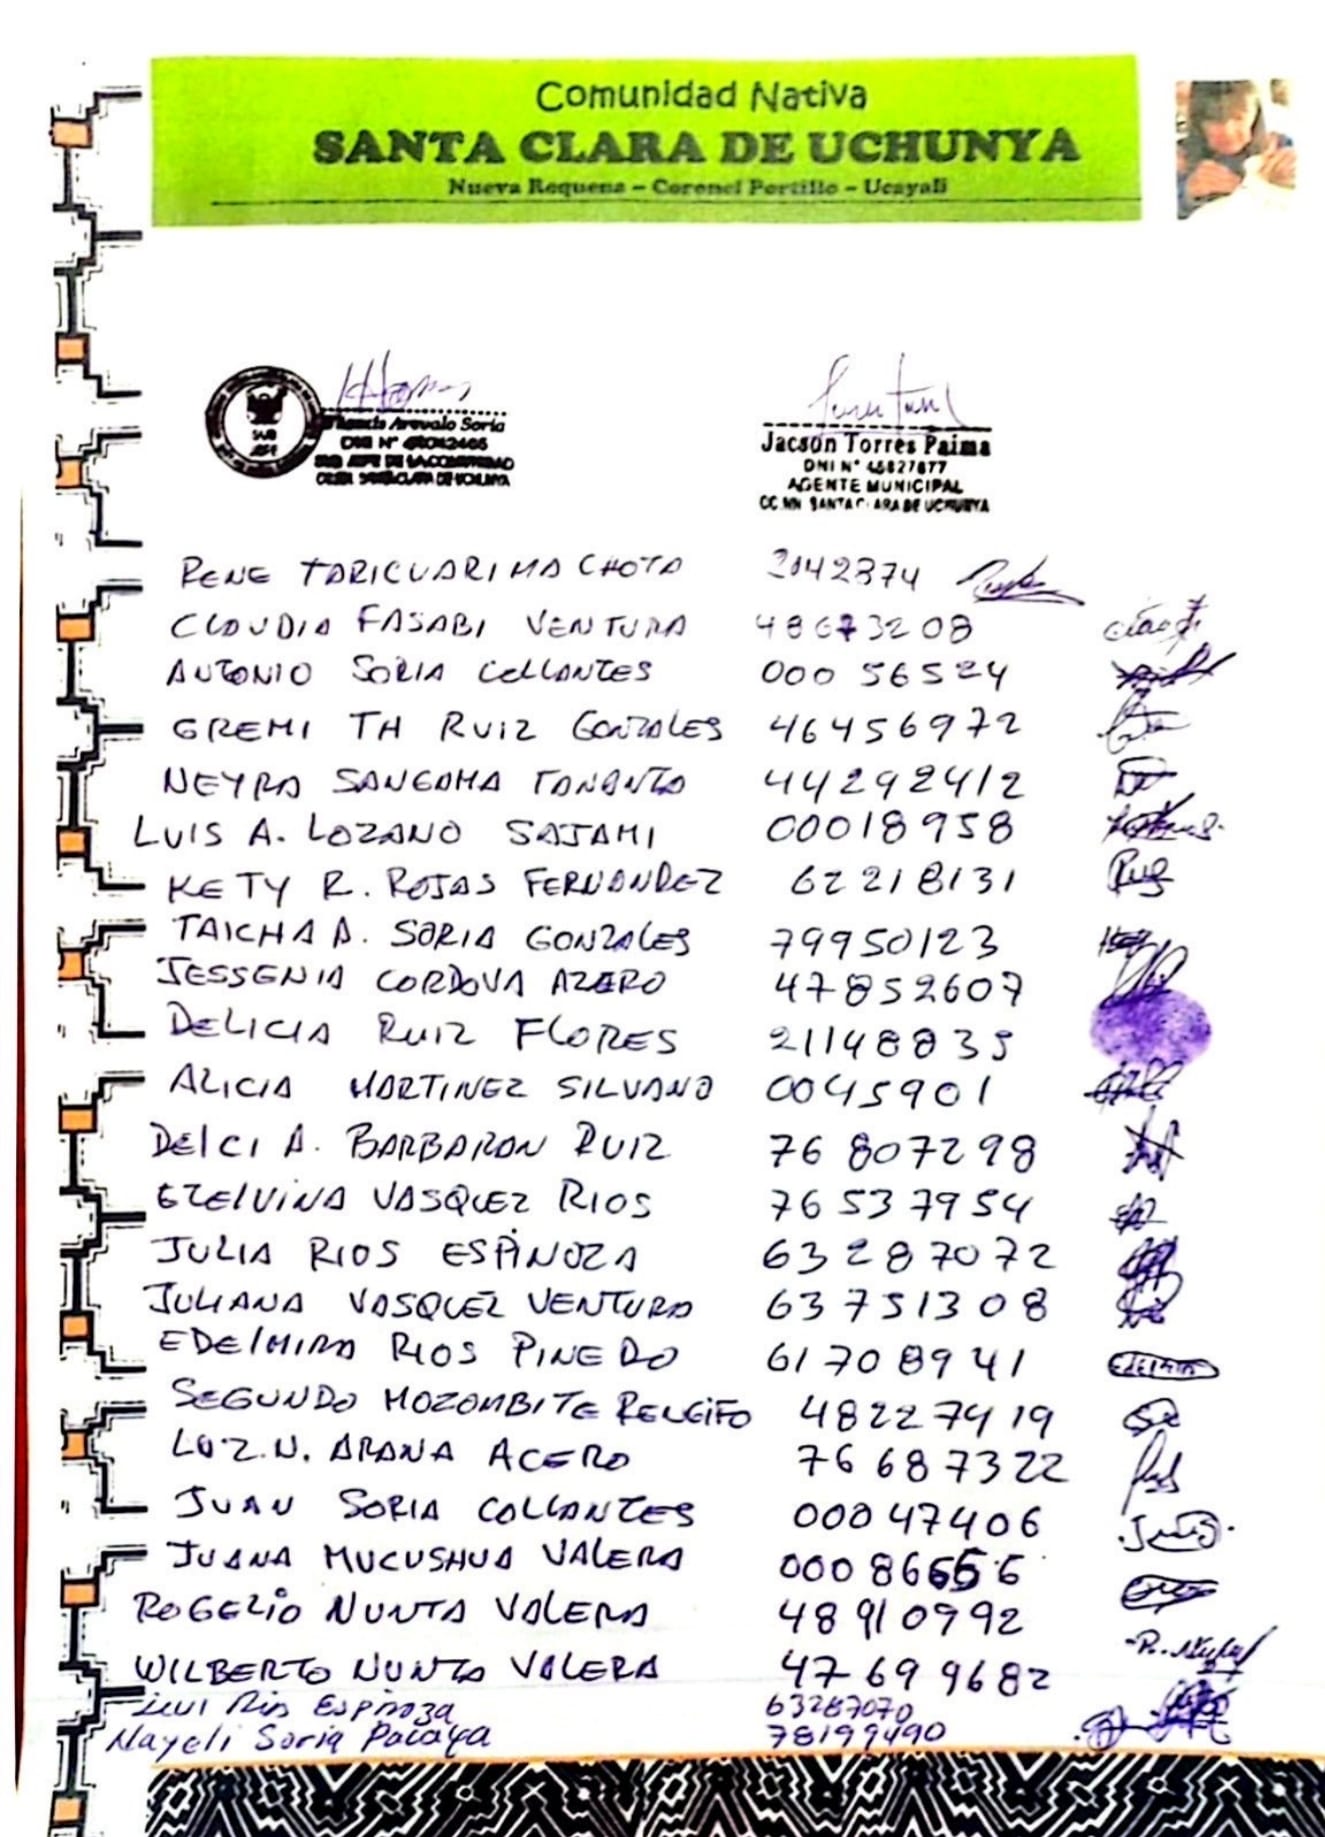 Comunidad Nativa
SANTA CLARA DE UCHUNYA
Nueva Requena – Coronel Portillo – Ucayali
SUB
JEFE
Arevalo Soria
DNI N°
SUB JEFE DE LA COMUNIDAD
SANTA CLARA DE UCHUNYA
Jacson Torres Paima
DNI N° 45827877
AGENTE MUNICIPAL
CC.NN SANTA CLARA DE UCHUNYA
RENE TARICUARIMA CHOTA 2042874
CLAUDIA FASABI VENTURA 48673208
ANTONIO SORIA COLLANTES 000 56524
GREMI TH RUIZ GONZALES 46456972
NEYRA SANGAMA TANANTA 44292412
LUIS A. LOZANO SAJAMI 00018958
KETY R. ROJAS FERNANDEZ 62218131
TAICHA A. SORIA GONZALES 79950123
JESSENIA CORDOVA AZERO 47852607
DELICIA RUIZ FLORES 21148835
ALICIA MARTINEZ SILVANO 0045901
DELCI A. BARBARAN RUIZ 76 807298
EZELVINA VASQUEZ RIOS 76537954
JULIA RIOS ESPINOZA 63287072
JULIANA VASQUEZ VENTURA 63751308
EDELMIRA RIOS PINEDO 61708941
SEGUNDO MOZOMBITE RELEIFO 48227419
LUZ.N. ARANA ACERO 76687322
JUAN SORIA COLLANTES 00047406
JUANA MUCUSHUA VALERA 00086656
ROGELIO NUNTA VALERA 48910992
WILBERTO NUNTA VALERA 47699682
Rios Espinoza 63287070
Nayeli Soria Pacaya 78199490